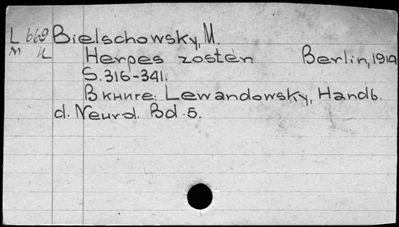 L 669 Bielschowsky, M.
M u Herpes zoster Berlin, 1914
S. 316-341.
В книге: Lewandowsky, Handb.
d. Neurol. Bd. 5.